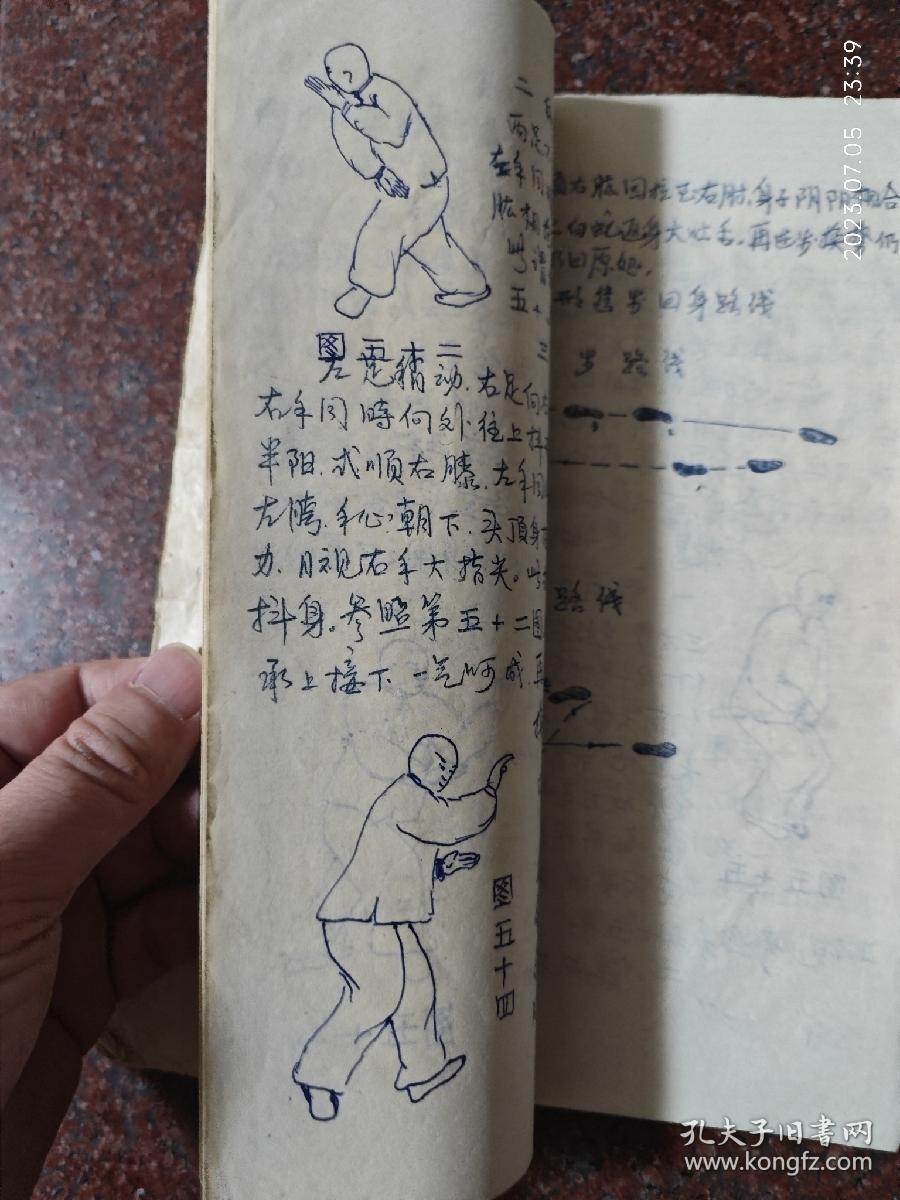 图五十二
左足稍动.右足向右
右手同時向外.往上抖
半阳.式顺右膝.左手同
左胯.手心朝下.头頂身
力.目视右手大指尖。此
抖身。参照第五十二图
承上接下一气呵成.再
图五十四
二
两足
左手同
肱相
此谓
五十
三
右肱回拉至右肘.身子阴阳相合
白蛇返身大吐舌.再进步换势仍
回原地.
形〇步回身路线
步路线
路线
图五十五
2023.07.05 23:39
孔夫子旧書网
www.kongfz.com